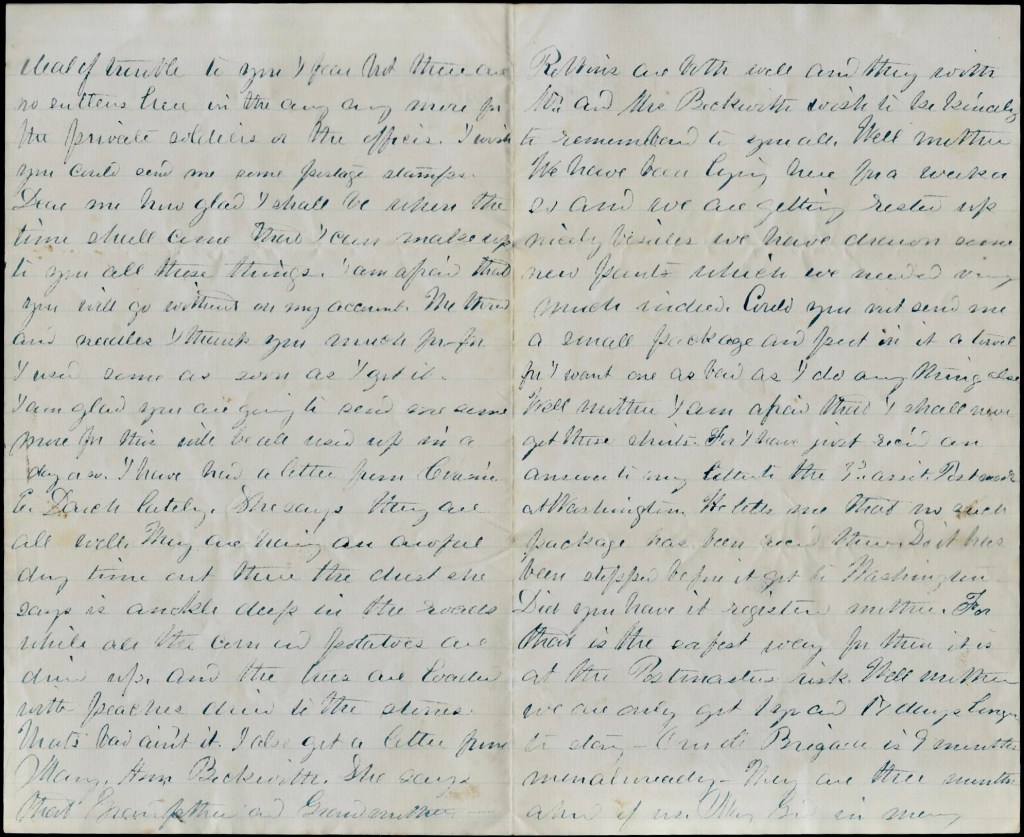 deal of trouble to you I fear but there are
no sutlers here in the army any more for
the private soldiers or the officers. I wish
you could send me some postage stamps.
Dear me how glad I shall be when the
time shall come that I can make up
to you all these things. I am afraid that
you will go without on my account. The thread
and needles I thank you much for for
I used some as soon as I got it.
I am glad you are going to send me some
more for this will be all used up in a
day or so. I have had a letter from
E. lately. She says they are
all well. They are having an awful
dry time out there the dust she
says is anckle deep in the roads
while all the corn and potatoes are
dried up. and the trees are loaded
with peaches dried to the stones.
Thats bad aint it. I also got a letter from
Mary. Beckwith. She says
that Grandfather and Grandmother
Robbins are both well and they with
Wm and Mrs Beckwith wish to be kindly
to remembered to you all. Well mother
We have been lying here for a week or
so and we are getting rested up
nicely besides we have drawn some
new pants which we needed very
much indeed. Could you not send me
a small package and put in it a towel
for I want one as bad as I do any thing else
Well mother I am afraid that I shall never
get those shirts. For I have just rec'd an
answer to my letter to the 3d assit. Postmaster
at Washington. He tells me that no such
package has been rec'd there. Do it has
been stopped before it got to Washington
Did you have it registered mother. For
that is the safest way for then it is
at the Postmasters risk. Well mother
we are only got 1 yr and 17 days longer
to stay - Brigade is 9 months
men already - They are three months
ahead of us. in many